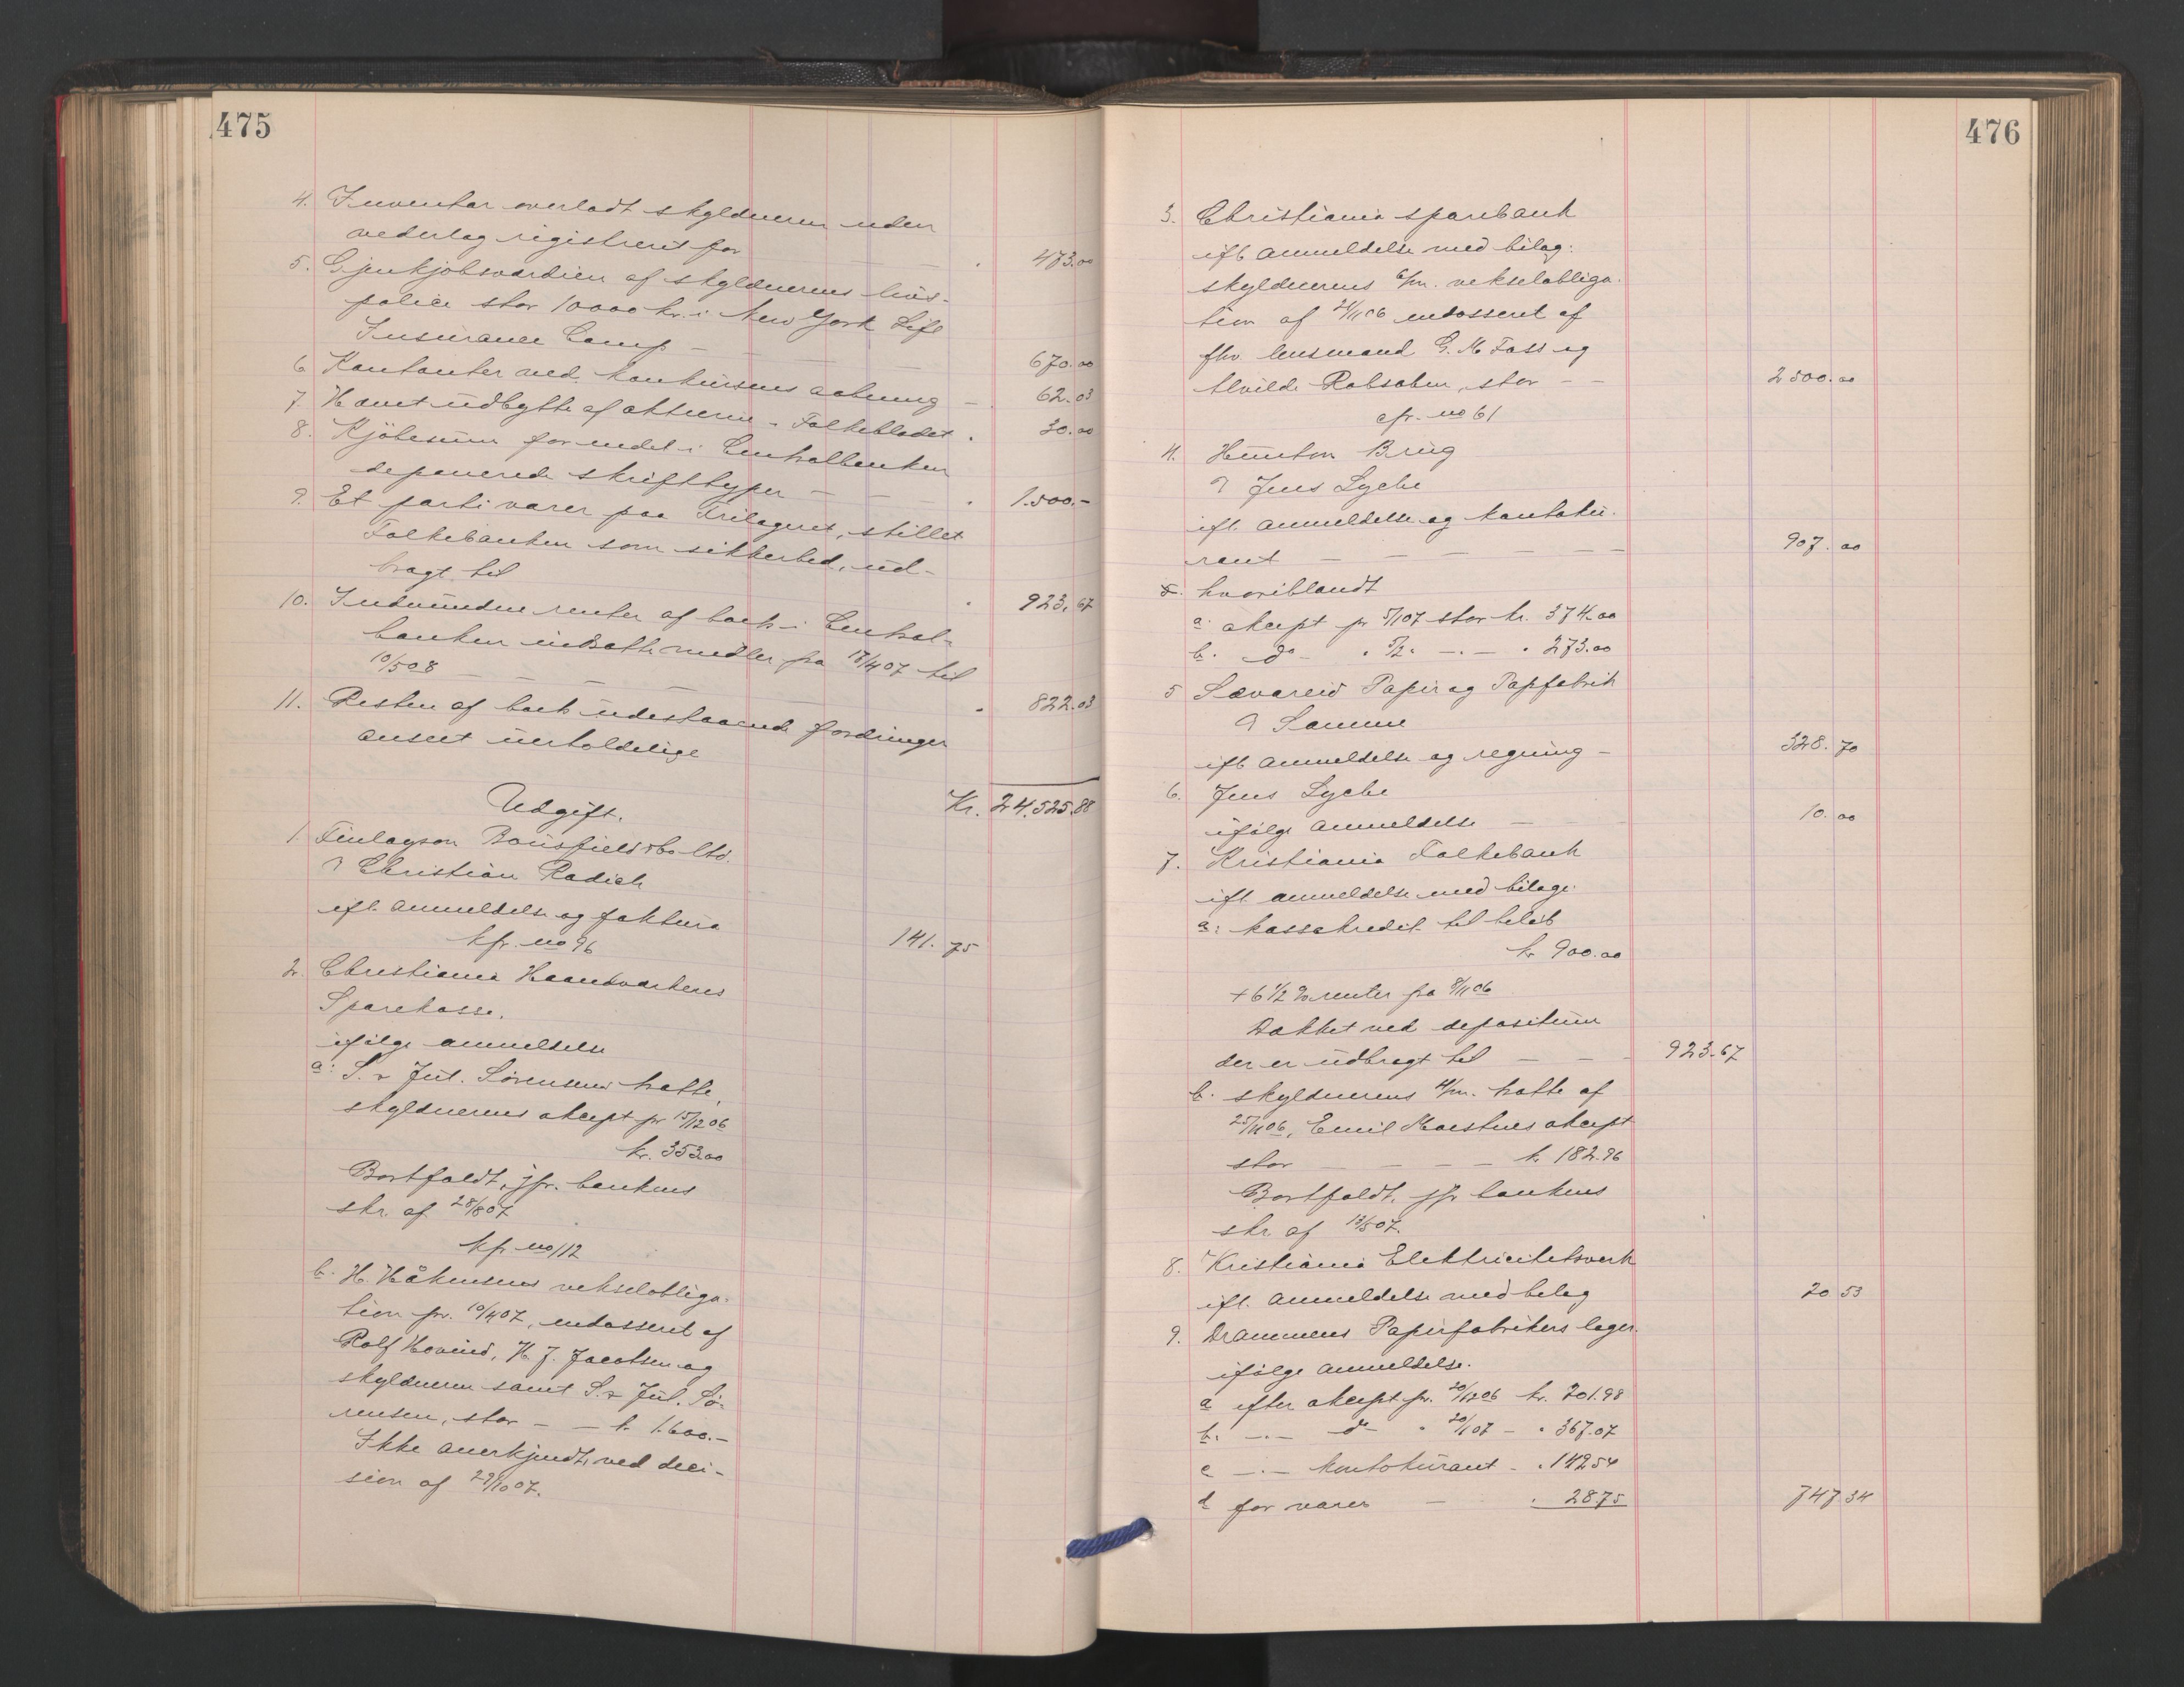 475
4. Inventar overladt skylderen uden
vederlag registreret for — — . 473.00
5. Gjenkjøbsværdien af skyldnerens livs-
police stor 10000 kr. i New York Life
Insurance Comp — — — 670.00
6 Kontanter ved konkursens aabning — 62.03
7. Hævet udbytte af aktierne i Folkebladet . 30.00
8. Kjøbesum for endel i Centralbanken
deponerede skrifttyper — — — . 1.500.-
9. Et parti varer paa Frilageret, stillet
Folkebanken som sikkerhed, ud-
bragt til . 923.67
10. Indvundne renter af boets i Central-
banken indsatte midler fra 18/4 07 til
10/5 08 — — — — . 822.03
11. Resten af boets udestaaende fordringer
anseet uerholdelige
Kr. 24.525.88
Udgift.
1. Finlayson Bousfield & Co ltd.
v Christian Radich
ifl. anmeldelse og faktura 141.75
kfr. no 96
2. Christiania Haandværkeres
Sparekasse.
ifølge anmeldelse
a: S. & Jul. Sørensens tratte,
skyldnerens aksept pr 15/12 06
kr. 353.00
Bortfaldt, jfr. bankens
skr. af 28/8 07
kfr no 112
b. H. Håkensens vekselobliga-
tion pr. 10/4 07, endosseret af
Rolf Hovind, H. J. Jacobsen og
skyldneren samt S. & Jul. Sø-
rensen, stor — — k. 1.600.—
Ikke anerkjendt, ved deci-
sion af 29/10 07.
476
3. Christiania sparebank
ifl anmeldelse med bilag.
skyldnerens 6/m. vekselobliga-
tion af 21/11 06 endosseret af
fhv. lensmand G. M. Foss og
Robsahm, stor — — 2500.00
cfr. no 61
4. Hunton Brug
v Jens Lyche
ifl. anmeldelse og kontoku-
rant — — — — — — 907.00
hvoriblandt
a. aksept pr 5/1 07 stor kr. 374.00
b. do . 5/2 . —.— . 273.00
5 Sævareid Papir og Papfabrik
v Samme
ifl anmeldelse og regning — 328.70
6. Jens Lyche
ifølge anmeldelse — — 10.00
7. Kristiania Folkebank
ifl. anmeldelse med bilage.
a: kassakredit til beløb
kr 900.00
+ 6 1/2 % renter fra 8/11 06
Dækket ved depositum
der er udbragt til — — — 923.67
b. skyldnerens 4/m. tratte af
25/11 06, Emil Moestues aksept
stor — — — — k. 182.96
Bortfaldt, jfr bankens
skr af 13/5 07.
8. Kristiania Elektricitetsverk
ifl. anmeldelse med bilag 20 53
9. Drammens Papirfabrikers lager.
ifølge anmeldelse.
a efter aksept pr. 20/12 06 kr. 201.98
b. —.— do . 20/1 07 — . 367.07
c —.— kontokurant — . 149.54
d for varer — . 28.75 747 34